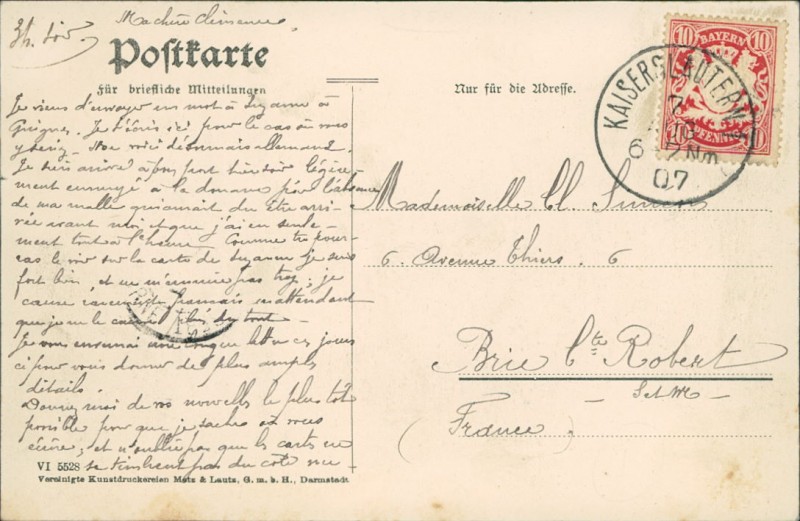 Ma chère Clémence
Postkarte
Für briefliche Mitteilungen
Nur für die Adresse.
BAYERN
10 10
PFENNIG
KAISERSLAUTERN
7
10
6 7 Nm
07
Je viens d'envoyer un mot à Suzanne à
Guignes. Je t'écris ici pour le cas où vous
y seriez. Me voici désormais allemand.
Je suis arrivé à bon port hier soir légère
ment ennuyé à la douane par l'absence
de ma malle qui aurait dû être arri-
vée avant moi et que j'ai eu seule-
ment tout à l'heure. Comme tu pour-
ras le voir sur la carte de Suzanne je suis
fort bien, et ne m'ennuie pas trop; je
cause rarement français en attendant
que je ne le cause plus du tout
Je vous enverrai une longue lettre ces jours
ci pour vous donner de plus amples
détails.
Donnez moi de vos nouvelles le plus tôt
possible pour que je sache où vous
écrire; et n'oublie pas que les cartes
se timbrent pas du côté vue
Mademoiselle Cl.
6. Avenue Thiers. 6
Brie Cte Robert
S et M
(France)
VI 5528
Vereinigte Kunstdruckereien Metz & Lautz, G. m. b. H., Darmstadt